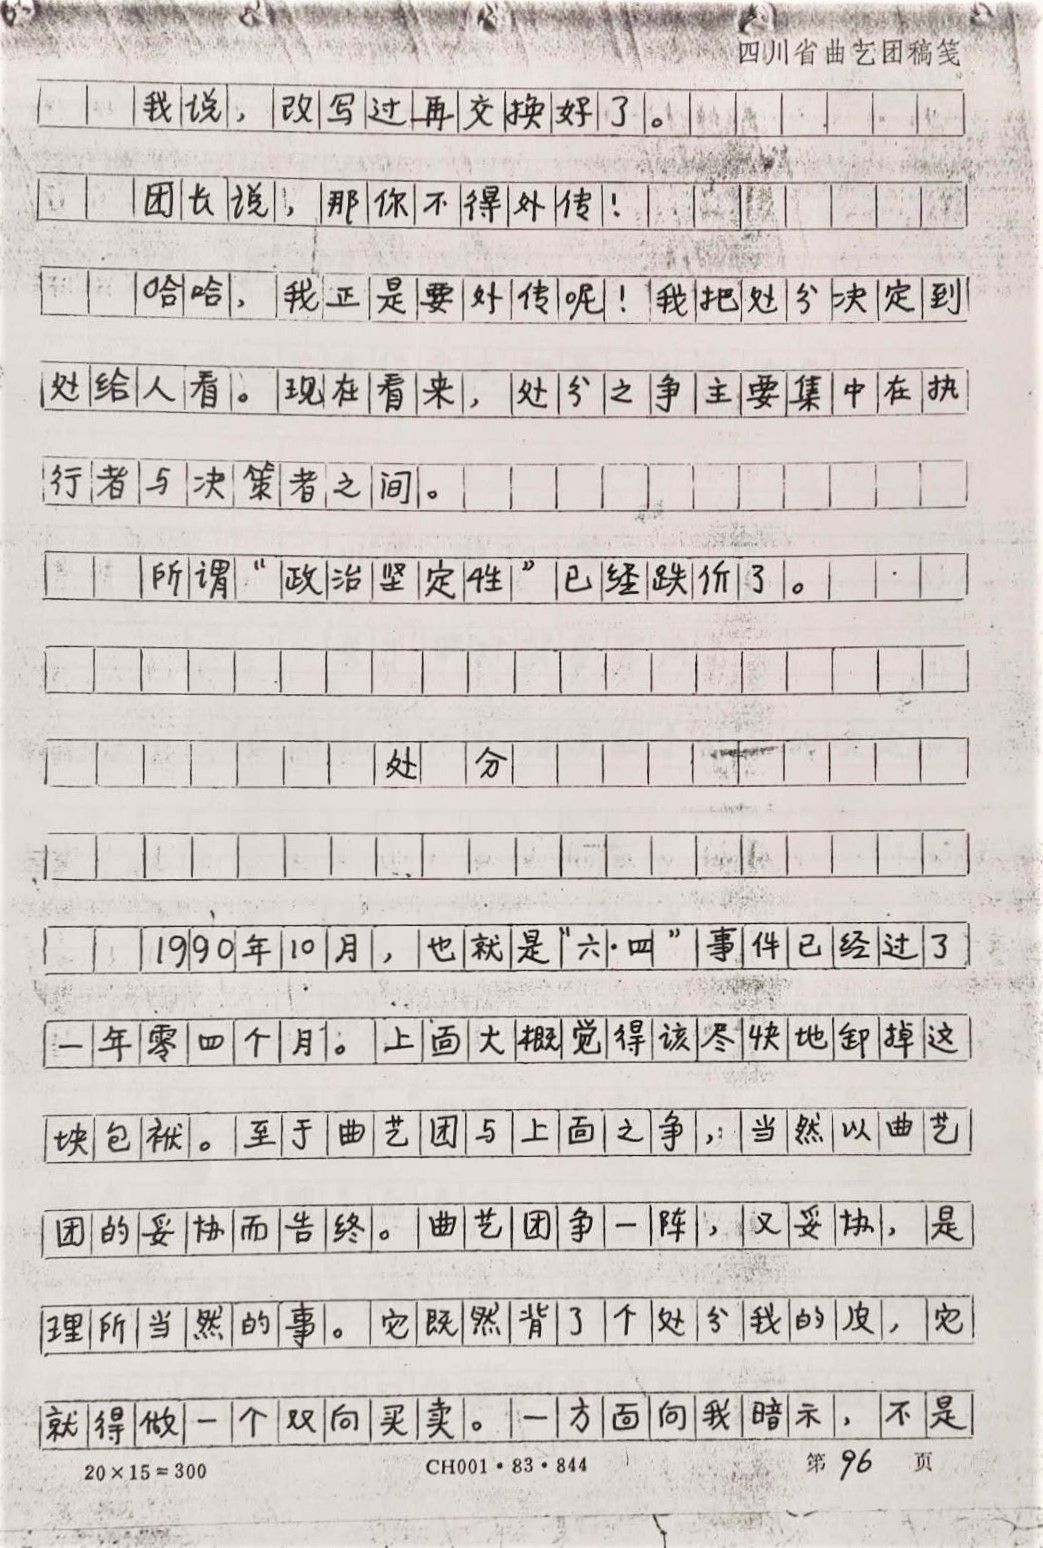 四川省曲艺团稿笺
我说，改写过再交换好了。
团长说，那你不得外传！
哈哈，我正是要外传呢！我把处分决定到
处给人看。现在看来，处分之争主要集中在执
行者与决策者之间。
所谓“政治坚定性”已经跌价了。
处分
1990年10月，也就是“六·四”事件已经过了
一年零四个月。上面大概觉得该尽快地卸掉这
块包袱。至于曲艺团与上面之争，当然以曲艺
团的妥协而告终。曲艺团争一阵，又妥协，是
理所当然的事。它既然背了个处分我的皮，它
就得做一个双向买卖。一方面向我暗示，不是
20×15=300 CH001·83·844 第96页